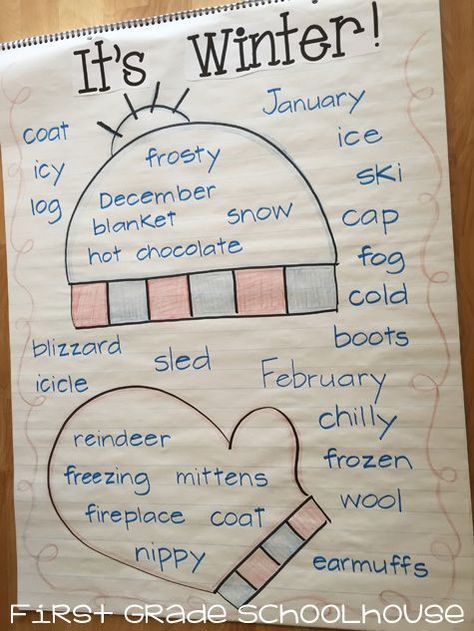 It's Winter!
January
coat
ice
frosty
icy
ski
December
log
blanket
snow
cap
hot chocolate
fog
cold
boots
blizzard
sled
icicle
February
chilly
reindeer
frozen
freezing mittens
wool
fireplace coat
nippy
earmuffs
First Grade Schoolhouse